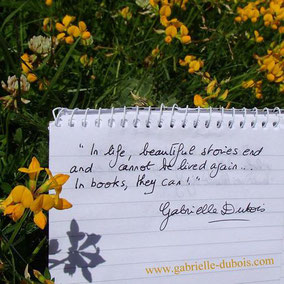 "In life, beautiful stories end
and cannot be lived again...
In books, they can!"
Gabrielle Dubois
www.gabrielle-dubois.com